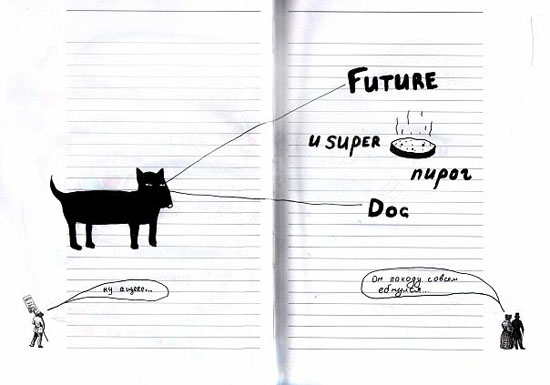 FUTURE
и SUPER
пирог
DOG
ну ащеее...
Он походу совсем
ебнулся...